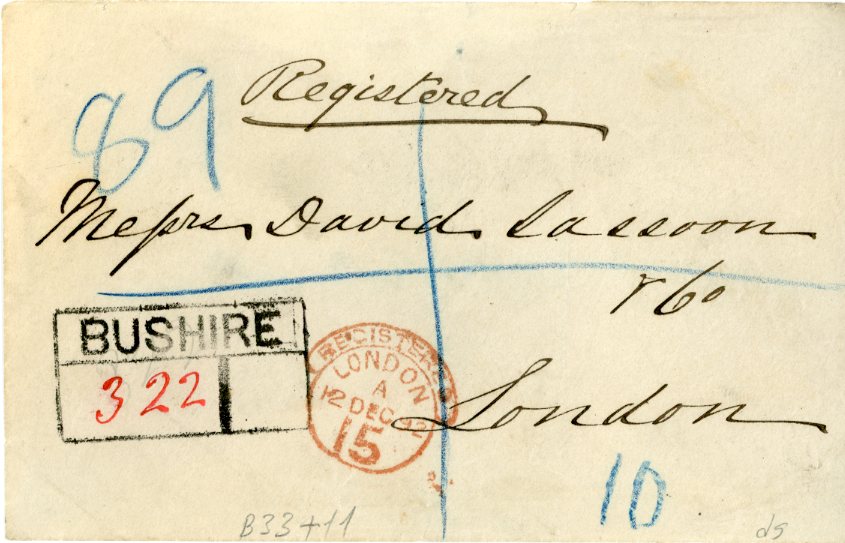 Registered
89
Messrs David Sassoon
& Co
BUSHIRE
322
REGISTERED
LONDON
A
12 DEC 12
15
London
10
B33+11
ds